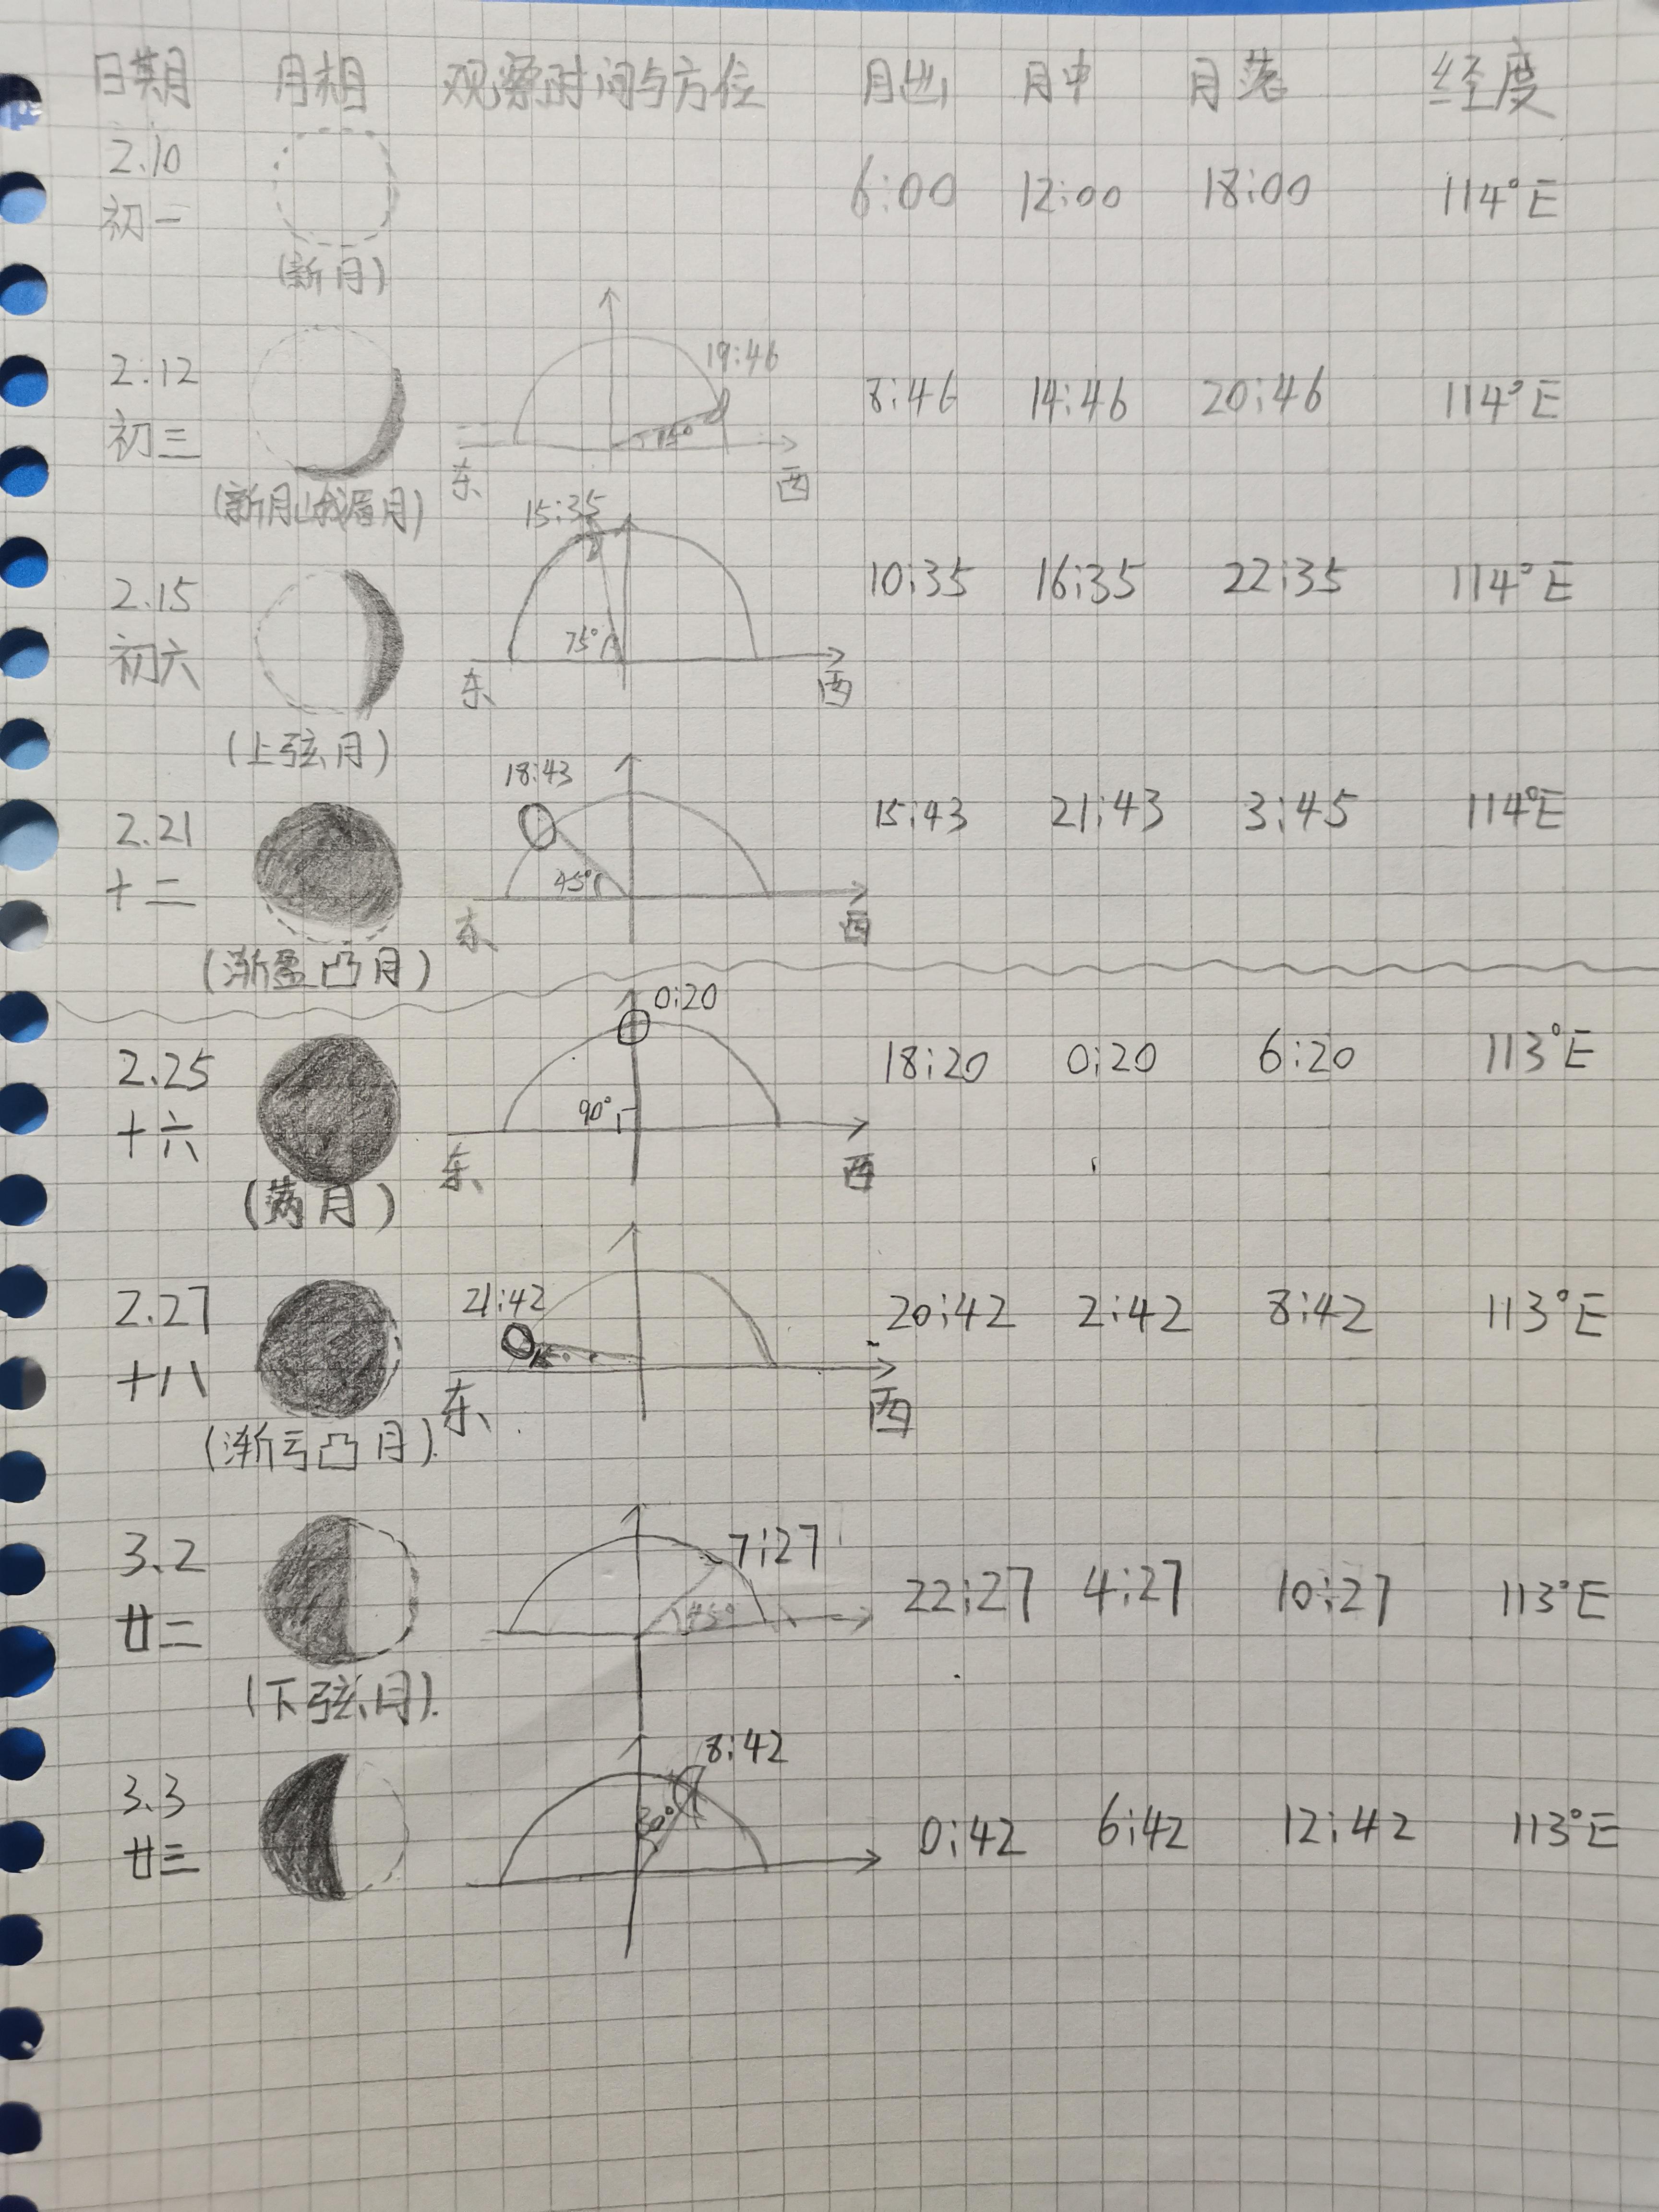 日期 月相 观察时间与方位 月出 月中 月落 经度
2.10
初一 6:00 12:00 18:00 114°E
(新月)
19:46
2.12 8:46 14:46 20:46 114°E
初三 15°
东 西
(新月蛾眉月)
15:35
2.15 10:35 16:35 22:35 114°E
初六 75°
东 西
(上弦月)
18:43
2.21 15:43 21:43 3:45 114°E
十二 45°
东 西
(渐盈凸月)
0:20
2.25 18:20 0:20 6:20 113°E
十六 90°
东 西
(满月)
21:42
2.27 20:42 2:42 8:42 113°E
十八
东 西
(渐亏凸月)
7:27
3.2 22:27 4:27 10:27 113°E
廿二 45°
(下弦月)
8:42
3.3 30° 0:42 6:42 12:42 113°E
廿三